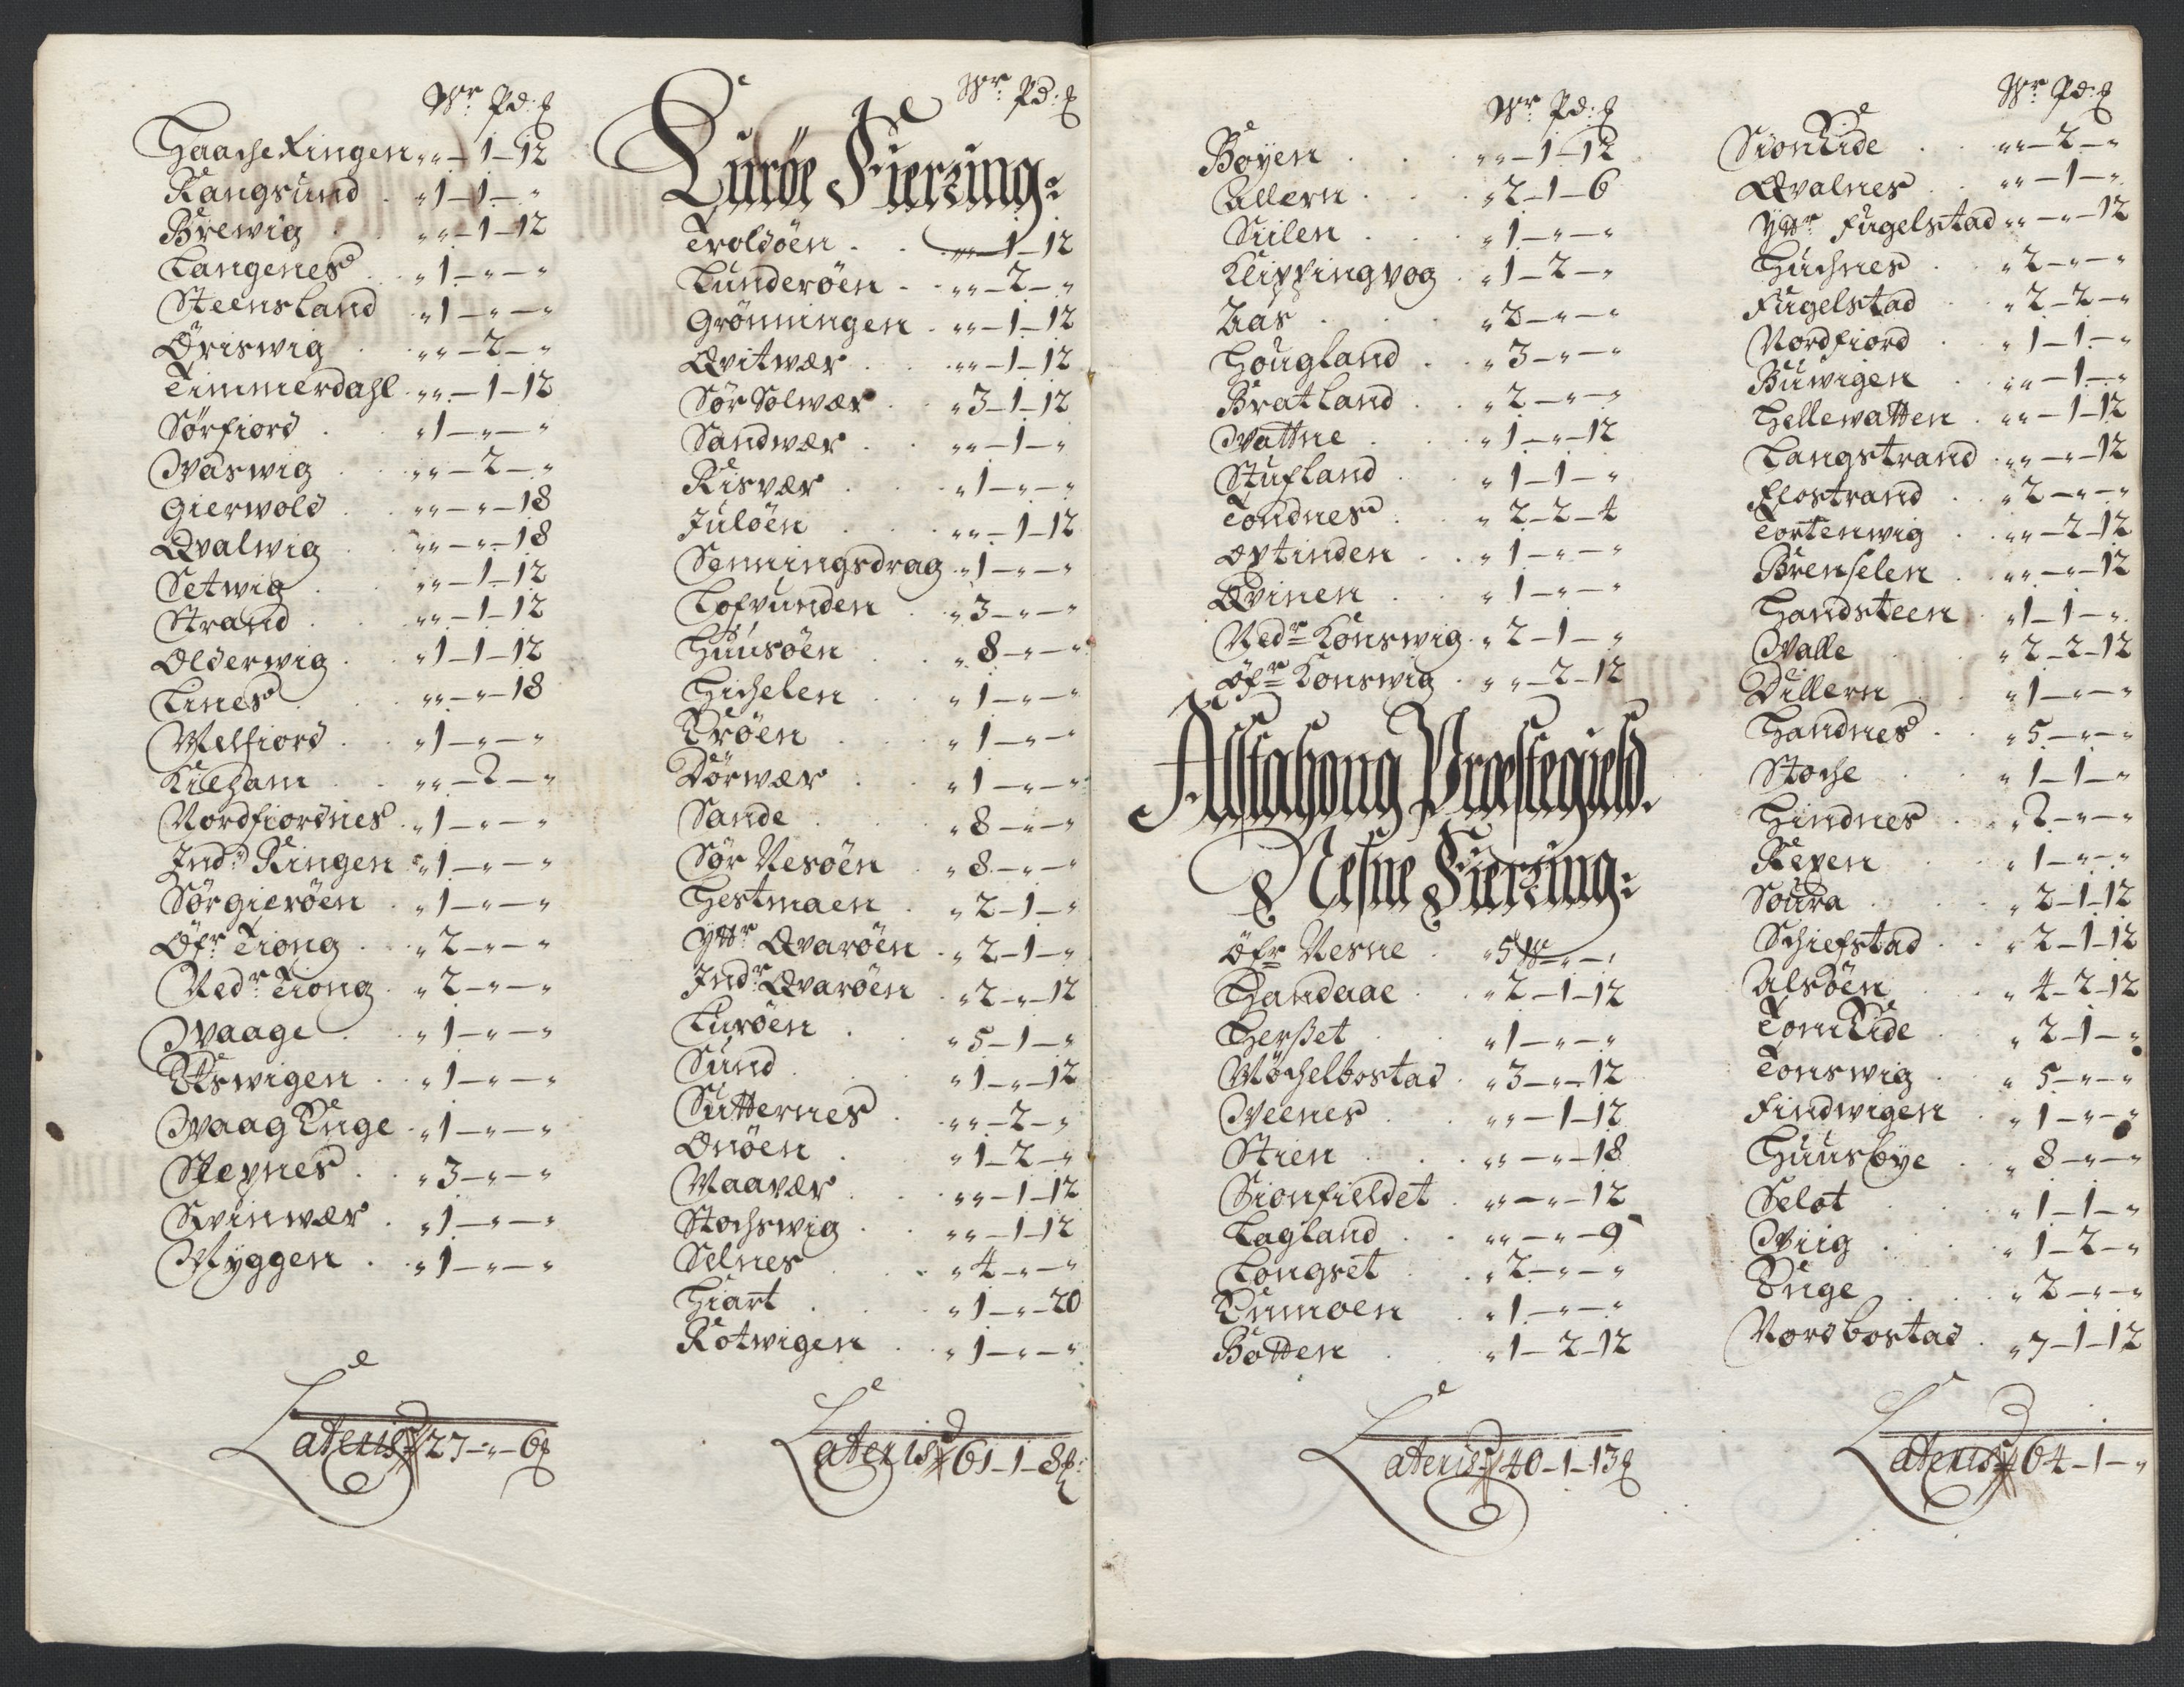 Wr Pd: ₰
Haache Ringen „„—1—12
Rangsund . „1—1—„
Brewig . „„—1—12
Langenes . „1—„—„
Steensland „1—„—„
Øriswig . „„—2—„
Timmerdahl „„—1—12
Sørfiord . „1—„—„
Waswig . „„—2—„
Gierwold . „„—„—18
Qvalwig . „„—„—18
Setwig . „„—1—12
Strand . „„—1—12
Olderwig . „1—1—12
Lines . „„—„—18
Melfiord . „1—„—„
Kilham . „„—2—„
Nordfiordnes „1—„—„
Indr Ringen „1—„—„
Sørgierøen . „1—„—„
Öfr Tiong . „2—„—„
Nedr Tiong . „2—„—„
Waage . „1—„—„
Etswigen . „1—„—„
Waag Enge „1—„—„
Stepnes . „3—„—„
Svinwær . „1—„—„
Myggen . „1—„—„
Lateris 27—„—6₰
Wr Pd: ₰
Lurøe Fierring:
Troldöen . „„—1—12
Lunderöen . „„—2—„
Grönningen . „„—1—12
Qvitwær . „„—1—12
Sør Solwær . „3—1—12
Sandwær . „„—1—„
Risvær . „1—„—„
Julöen . „„—1—12
Senningsdrag „1—„—„
Lofvunden . „3—„—„
Huusöen . „8—„—„
Hichelen . „1—„—„
Eröen . „1—„—„
Dörwær . „1—„—„
Sande . „8—„—„
Sør Nesöen . „8—„—„
Hestmaen . „2—1—„
Yttr Qvaröen . „2—1—„
Indr Qvaröen . „2—„—12
Luröen . „5—1—„
Sund . „1—„—12
Sutternes . „„—2—„
Onöen . „1—2—„
Maavær . „„—1—12
Stochswig . „„—1—12
Selnes . „4—„—„
Hiart . „1—„—20
Rotwigen . „1—„—„
Lateris 61—1—8₰:
Wr Pd: ₰
Bøyen . „„—1—12
Allern . „2—1—6
Siilen . „1—„—„
Klippingvog . „1—2—„
Aas
Hougland . „3—„—„
Bratland . „2—„—„
Wattne . „1—„—12
Stufland . „1—1—„
Tondnes . „2—2—4
Optinden . „1—„—„
Qvinen . „1—„—„
Nedr Konswig . „2—1—„
Öfr Konswig . „„—2—12
Alstahoug Præstegield.
Nesne Fierring:
Öfr Nesne . „5—„—„
Handaae . „2—1—12
Herßet . „1—„—„
Möchelbostad . „3—„—12
Weenes . „„—1—12
Stien . „„—„—18
Sionfieldet . „„—„—12
Lagland . „„—„—9
Longset . „2—„—„
Enmoen . „1—„—„
Botten . „1—2—12
Lateris 40—1—13₰
Wr Pd: ₰
Sion Eide . „„—2—„
Qvalnes . „„—1—„
Yttr Fugelstad „„—„—12
Huchnes . „2—„—„
Fugelstad . „2—2—„
Nordfiord . „1—1—„
Buwigen . „„—1—„
Hellewatten . „„—1—12
Langstrand . „„—„—12
Flostrand . „2—„—„
Tortenwig . „„—2—12
Brenselen . „„—„—12
Handsteen . „1—1—„
Walle . „2—2—12
Dillern . „1—„—„
Handnes . „5—„—„
Stoche . „1—1—„
Hindnes . „2—„—„
Repen . „1—„—„
Soura . „2—1—12
Schiefstad . „2—1—12
Alsöen . „4—2—12
Tom Eide . „2—1—„
Tonswig . „5—„—„
Findwigen . „1—„—„
Huusbye . „8—„—„
Selot . „1—1—„
Wiig . „1—2—„
Enge . „2—„—„
Nordbostad . „7—1—12
Lateris 64—1—„